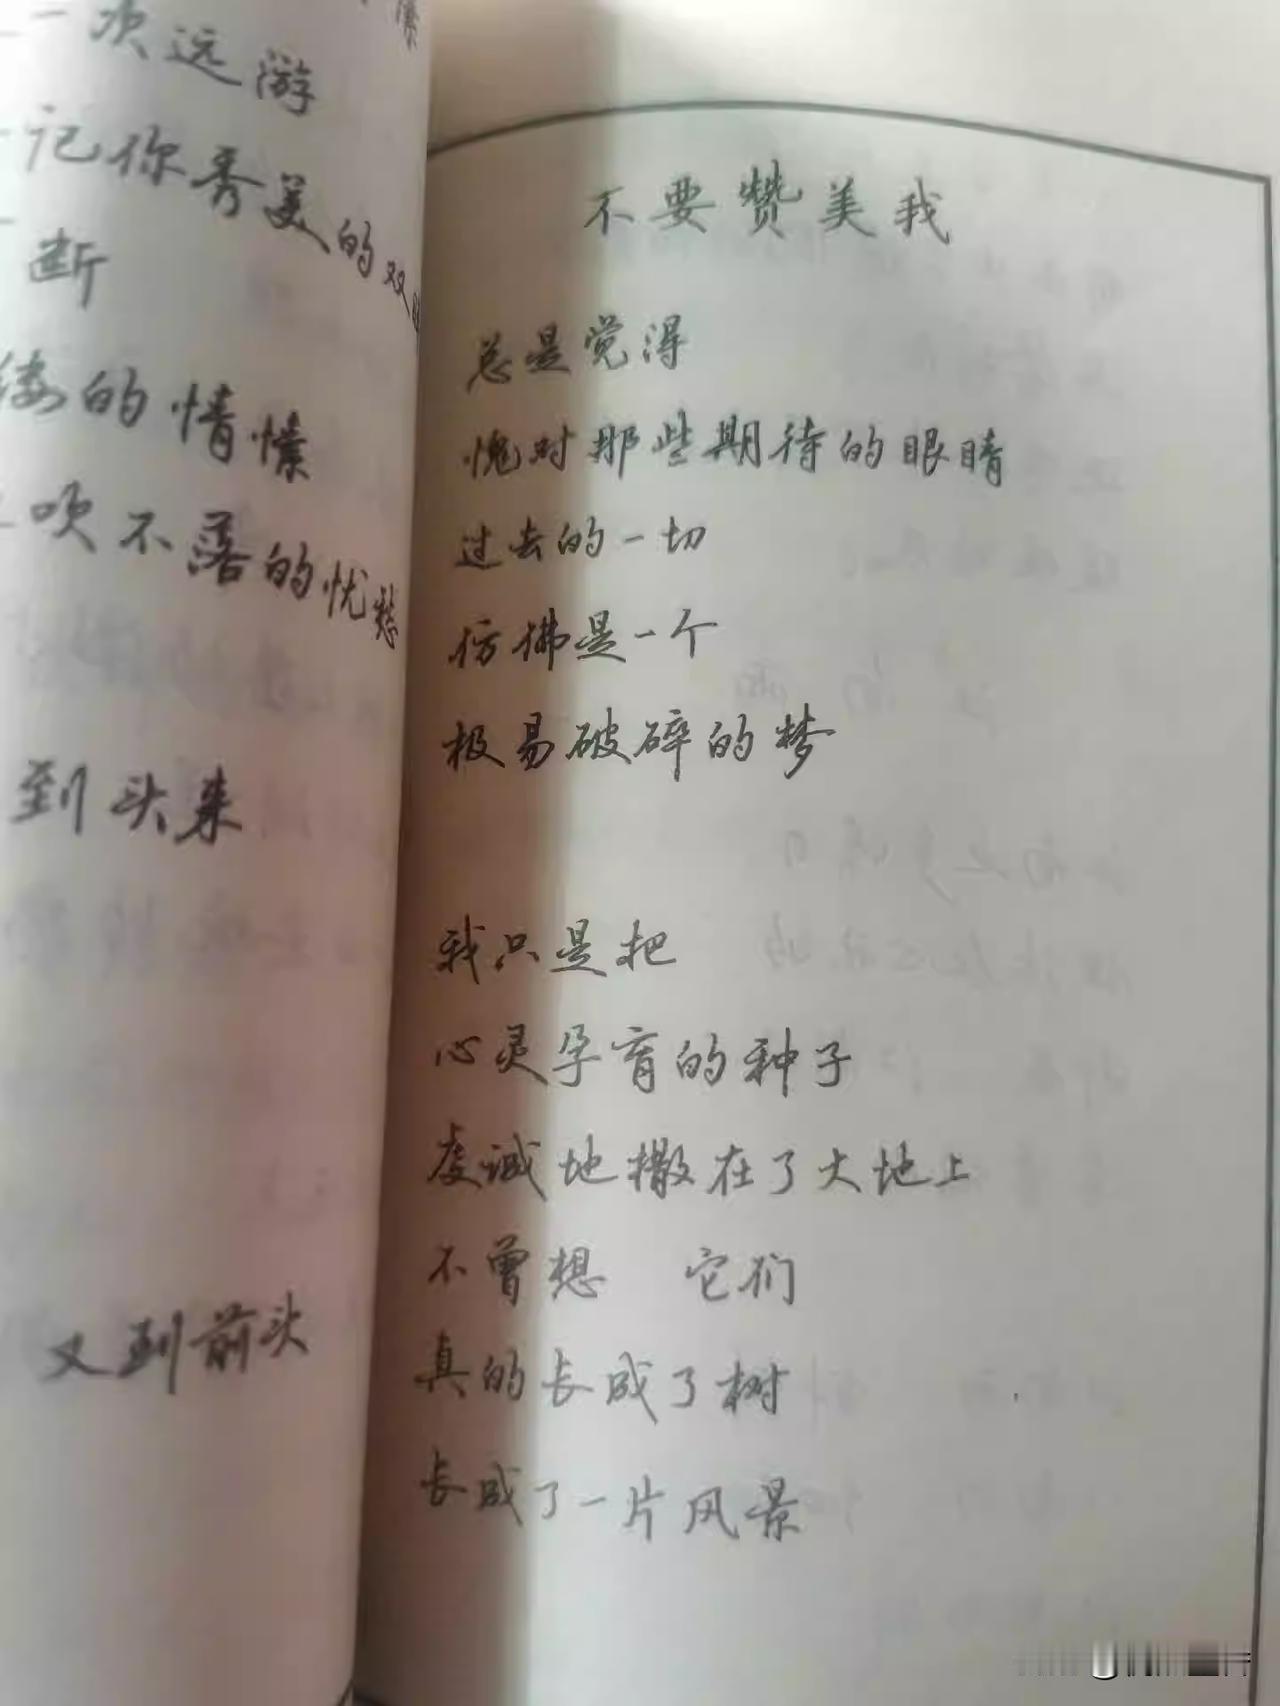 一次远游
记你秀美的双
断
的情愫
吹不落的忧愁
到头来
又到前头
不要赞美我
总是觉得
愧对那些期待的眼睛
过去的一切
仿佛是一个
极易破碎的梦
我只是把
心灵孕育的种子
虔诚地撒在了大地上
不曾想 它们
真的长成了树
长成了一片风景